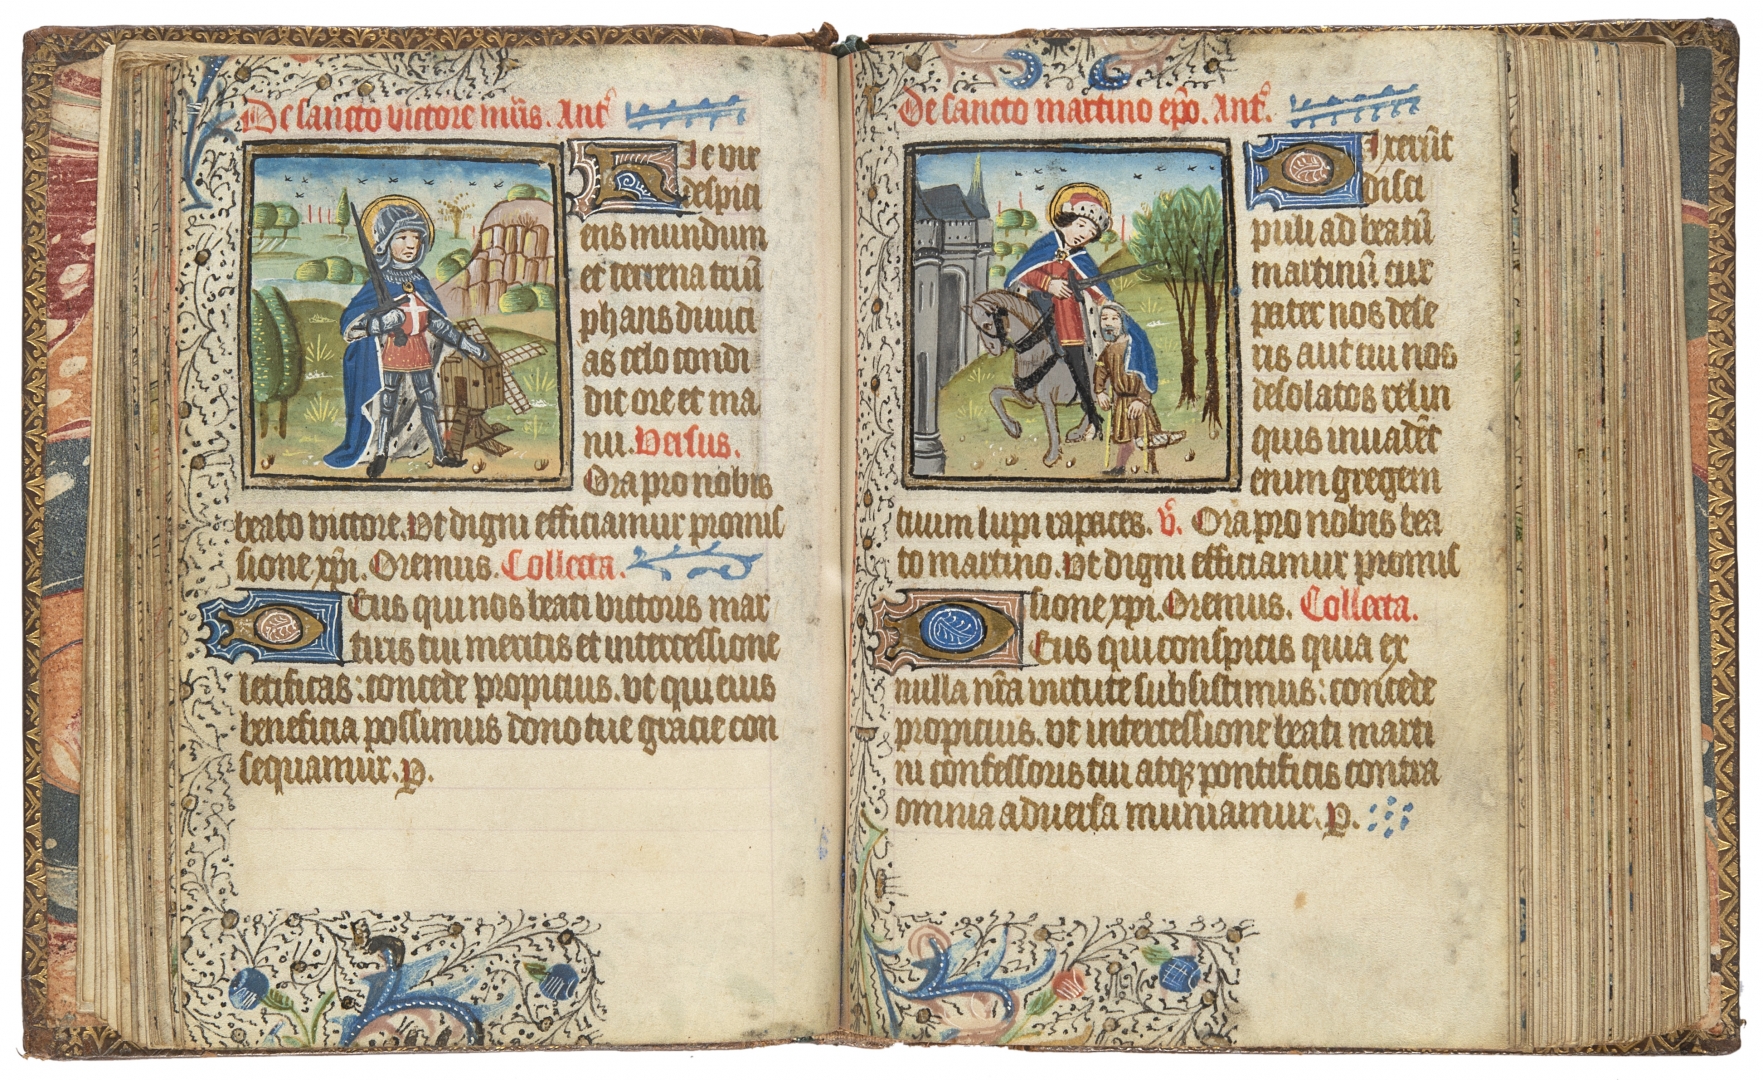 De sancto victore mr̄is. Antᵒ
Iste vir
despici
ens mundum
et terrena triū
phans divici
as celo condi
dit ore et ma
nu. Versus.
Ora pro nobis
beato victore. Ut digni efficiamur promis
sione xp̄i. Oremus. Collecta.
Deus qui nos beati victoris mar
tiris tui meritis et intercessione
letificas: concede propicius. ut qui eius
beneficia possimus dono tue gracie con
sequamur. P.
De sancto martino ep̄o. Antᵒ.
Dixerūt
disci
puli ad beatū
martinū cur
pater nos dese
ris aut cui nos
desolatos relin
quis invadēt
enim gregem
tuum lupi rapaces. V̄. Ora pro nobis bea
to martino. Ut digni efficiamur promis
sione xp̄i. Oremus. Collecta.
Deus qui conspicis quia ex
nulla nr̄a virtute subsistimus: concede
propicius. ut intercessione beati marti
ni confessoris tui atqꝫ pontificis contra
omnia adversa muniamur. P.